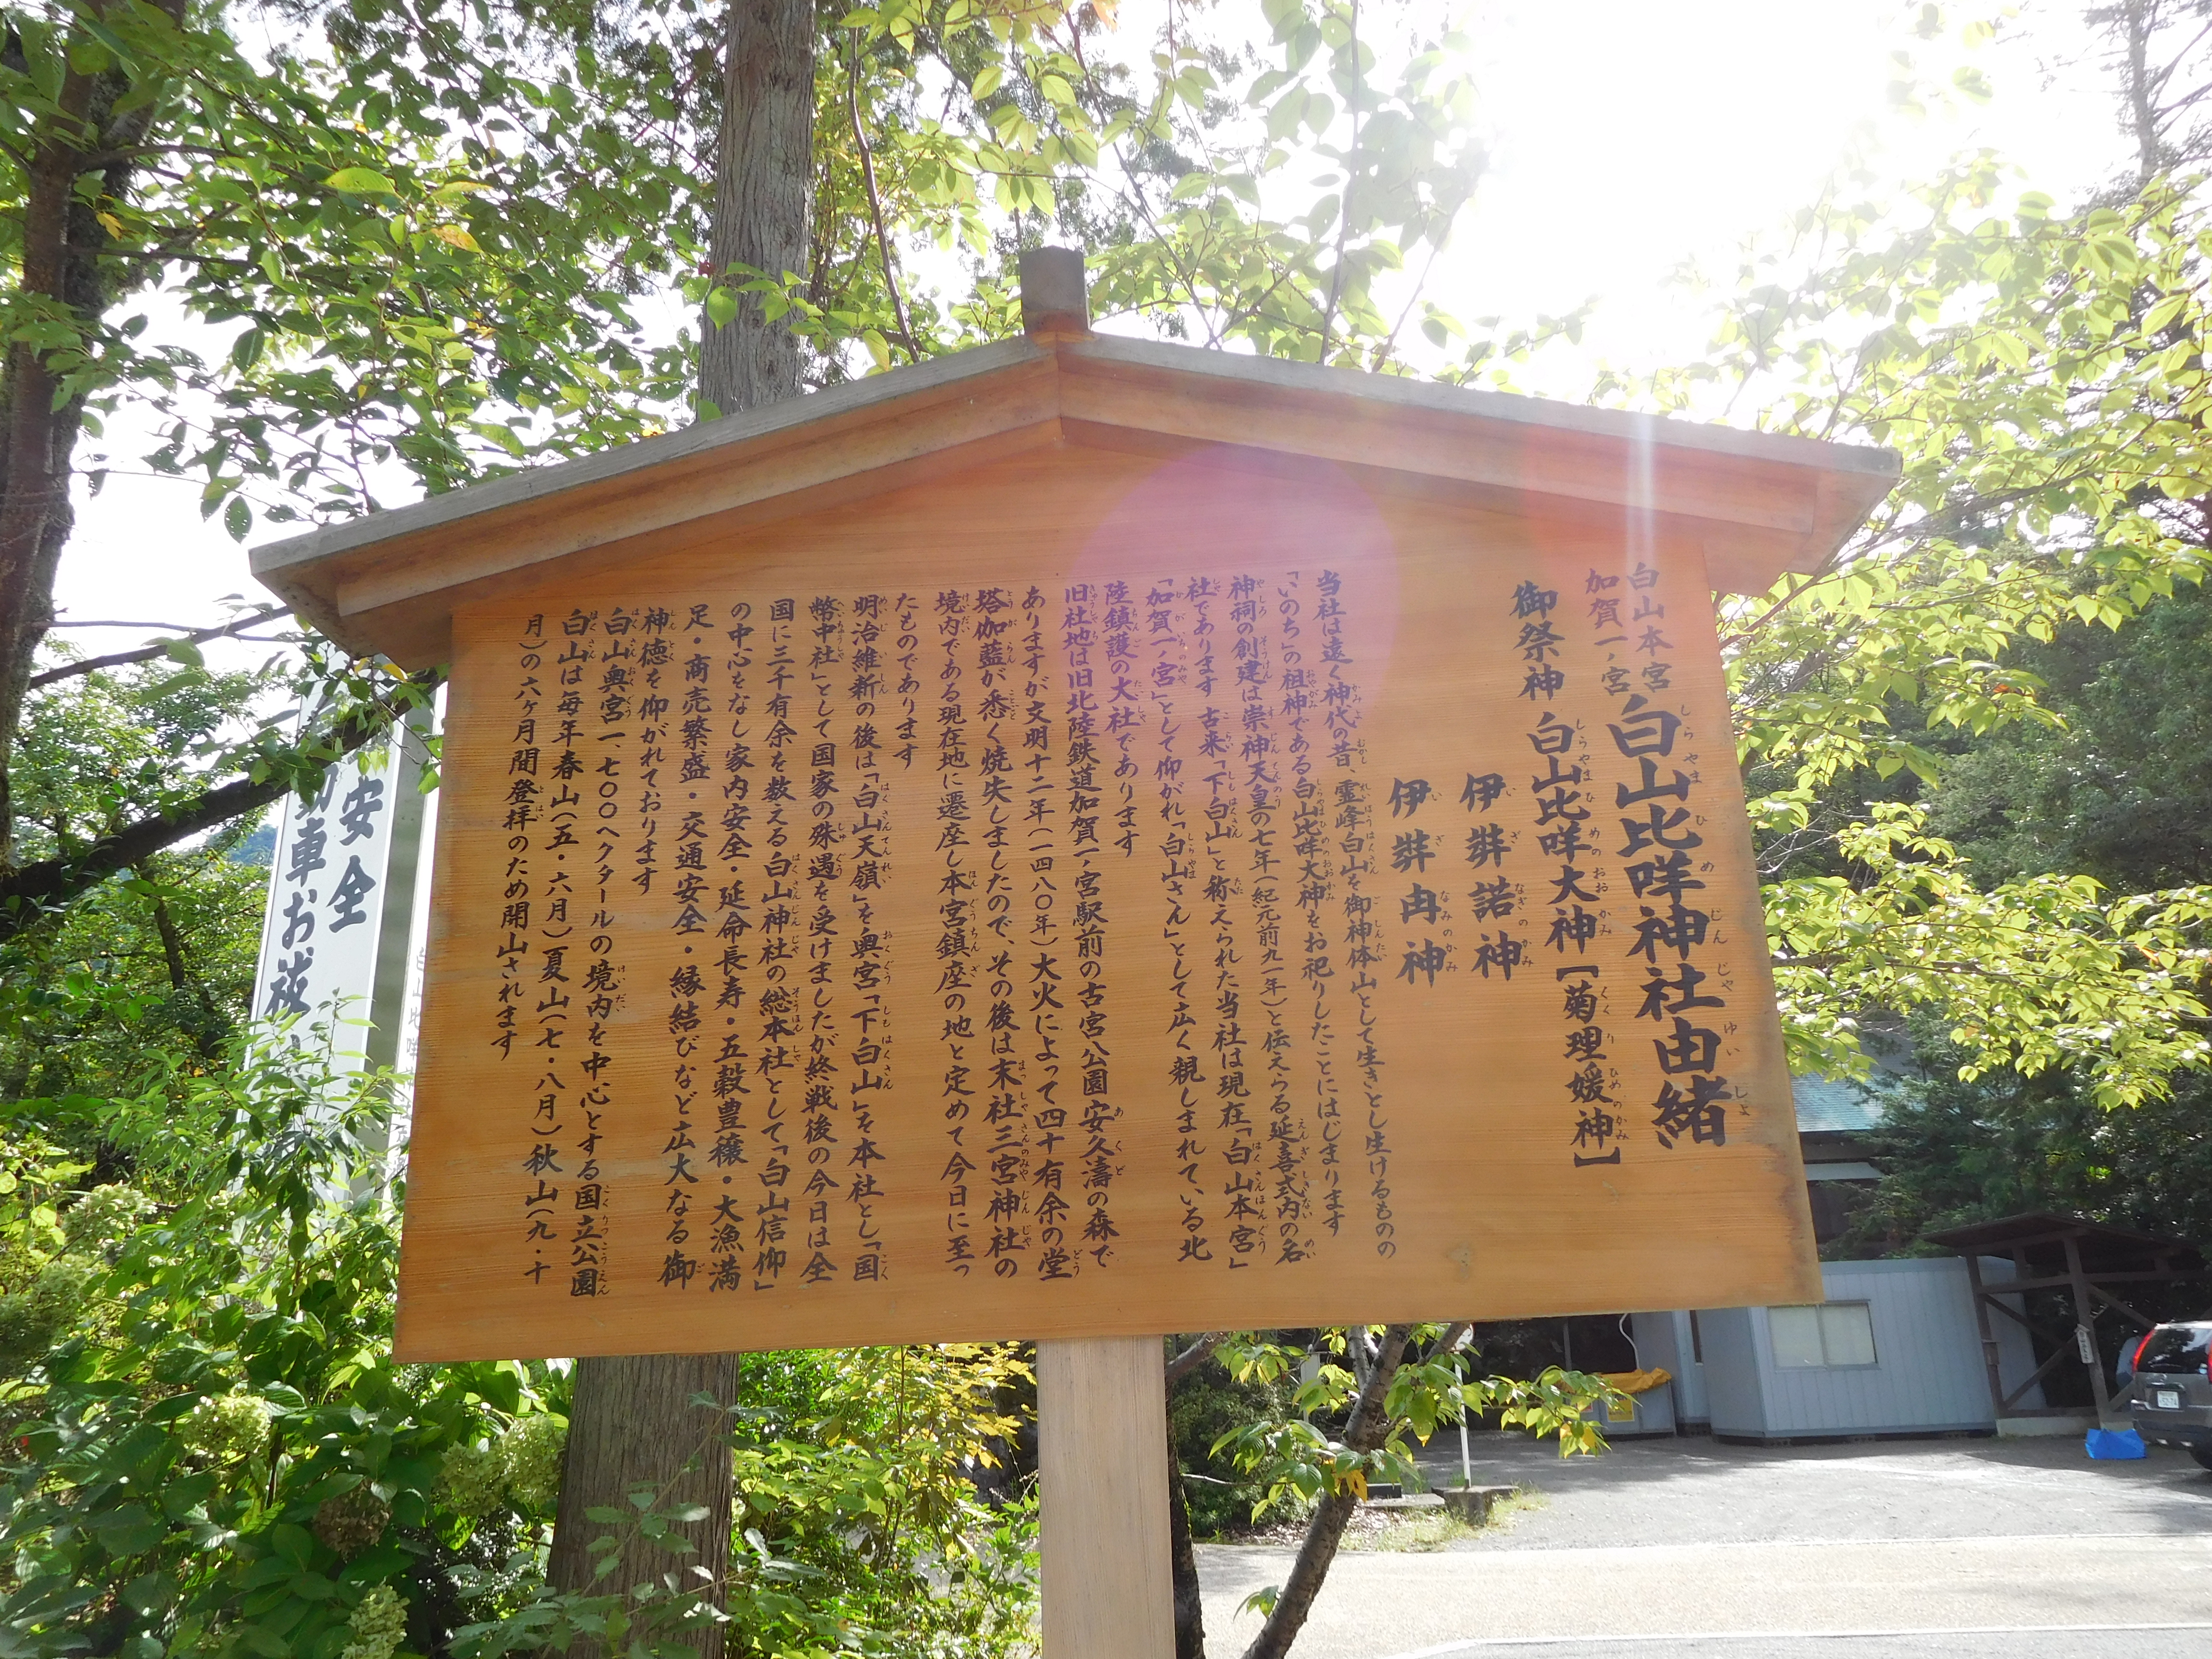 白山本宮
加賀一ノ宮
白山比咩神社由緒
御祭神 白山比咩大神【菊理媛神】
伊弉諾神
伊弉冉神
当社は遠く神代の昔、霊峰白山を御神体山として生きとし生けるものの
「いのち」の祖神である白山比咩大神をお祀りしたことにはじまります
神祠の創建は崇神天皇の七年(紀元前九一年)と伝えらる延喜式内の名
社であります 古来「下白山」と称えられた当社は現在「白山本宮」
「加賀一ノ宮」として仰がれ「白山さん」として広く親しまれている北
陸鎮護の大社であります
旧社地は旧北陸鉄道加賀一ノ宮駅前の古宮公園安久濤の森で
ありますが文明十二年(一四八〇年)大火によって四十有余の堂
塔伽藍が悉く焼失しましたので、その後は末社三宮神社の
境内である現在地に遷座し本宮鎮座の地と定めて今日に至っ
たものであります
明治維新の後は「白山天嶺」を奥宮「下白山」を本社とし「国
幣中社」として国家の殊遇を受けましたが終戦後の今日は全
国に三千有余を数える白山神社の総本社として「白山信仰」
の中心をなし家内安全・延命長寿・五穀豊穣・大漁満
足・商売繁盛・交通安全・縁結びなど広大なる御
神徳を仰がれております
白山奥宮一、七〇〇ヘクタールの境内を中心とする国立公園
白山は毎年春山(五・六月)夏山(七・八月)秋山(九・十
月)の六ヶ月間登拝のため開山されます
安全
動車お祓